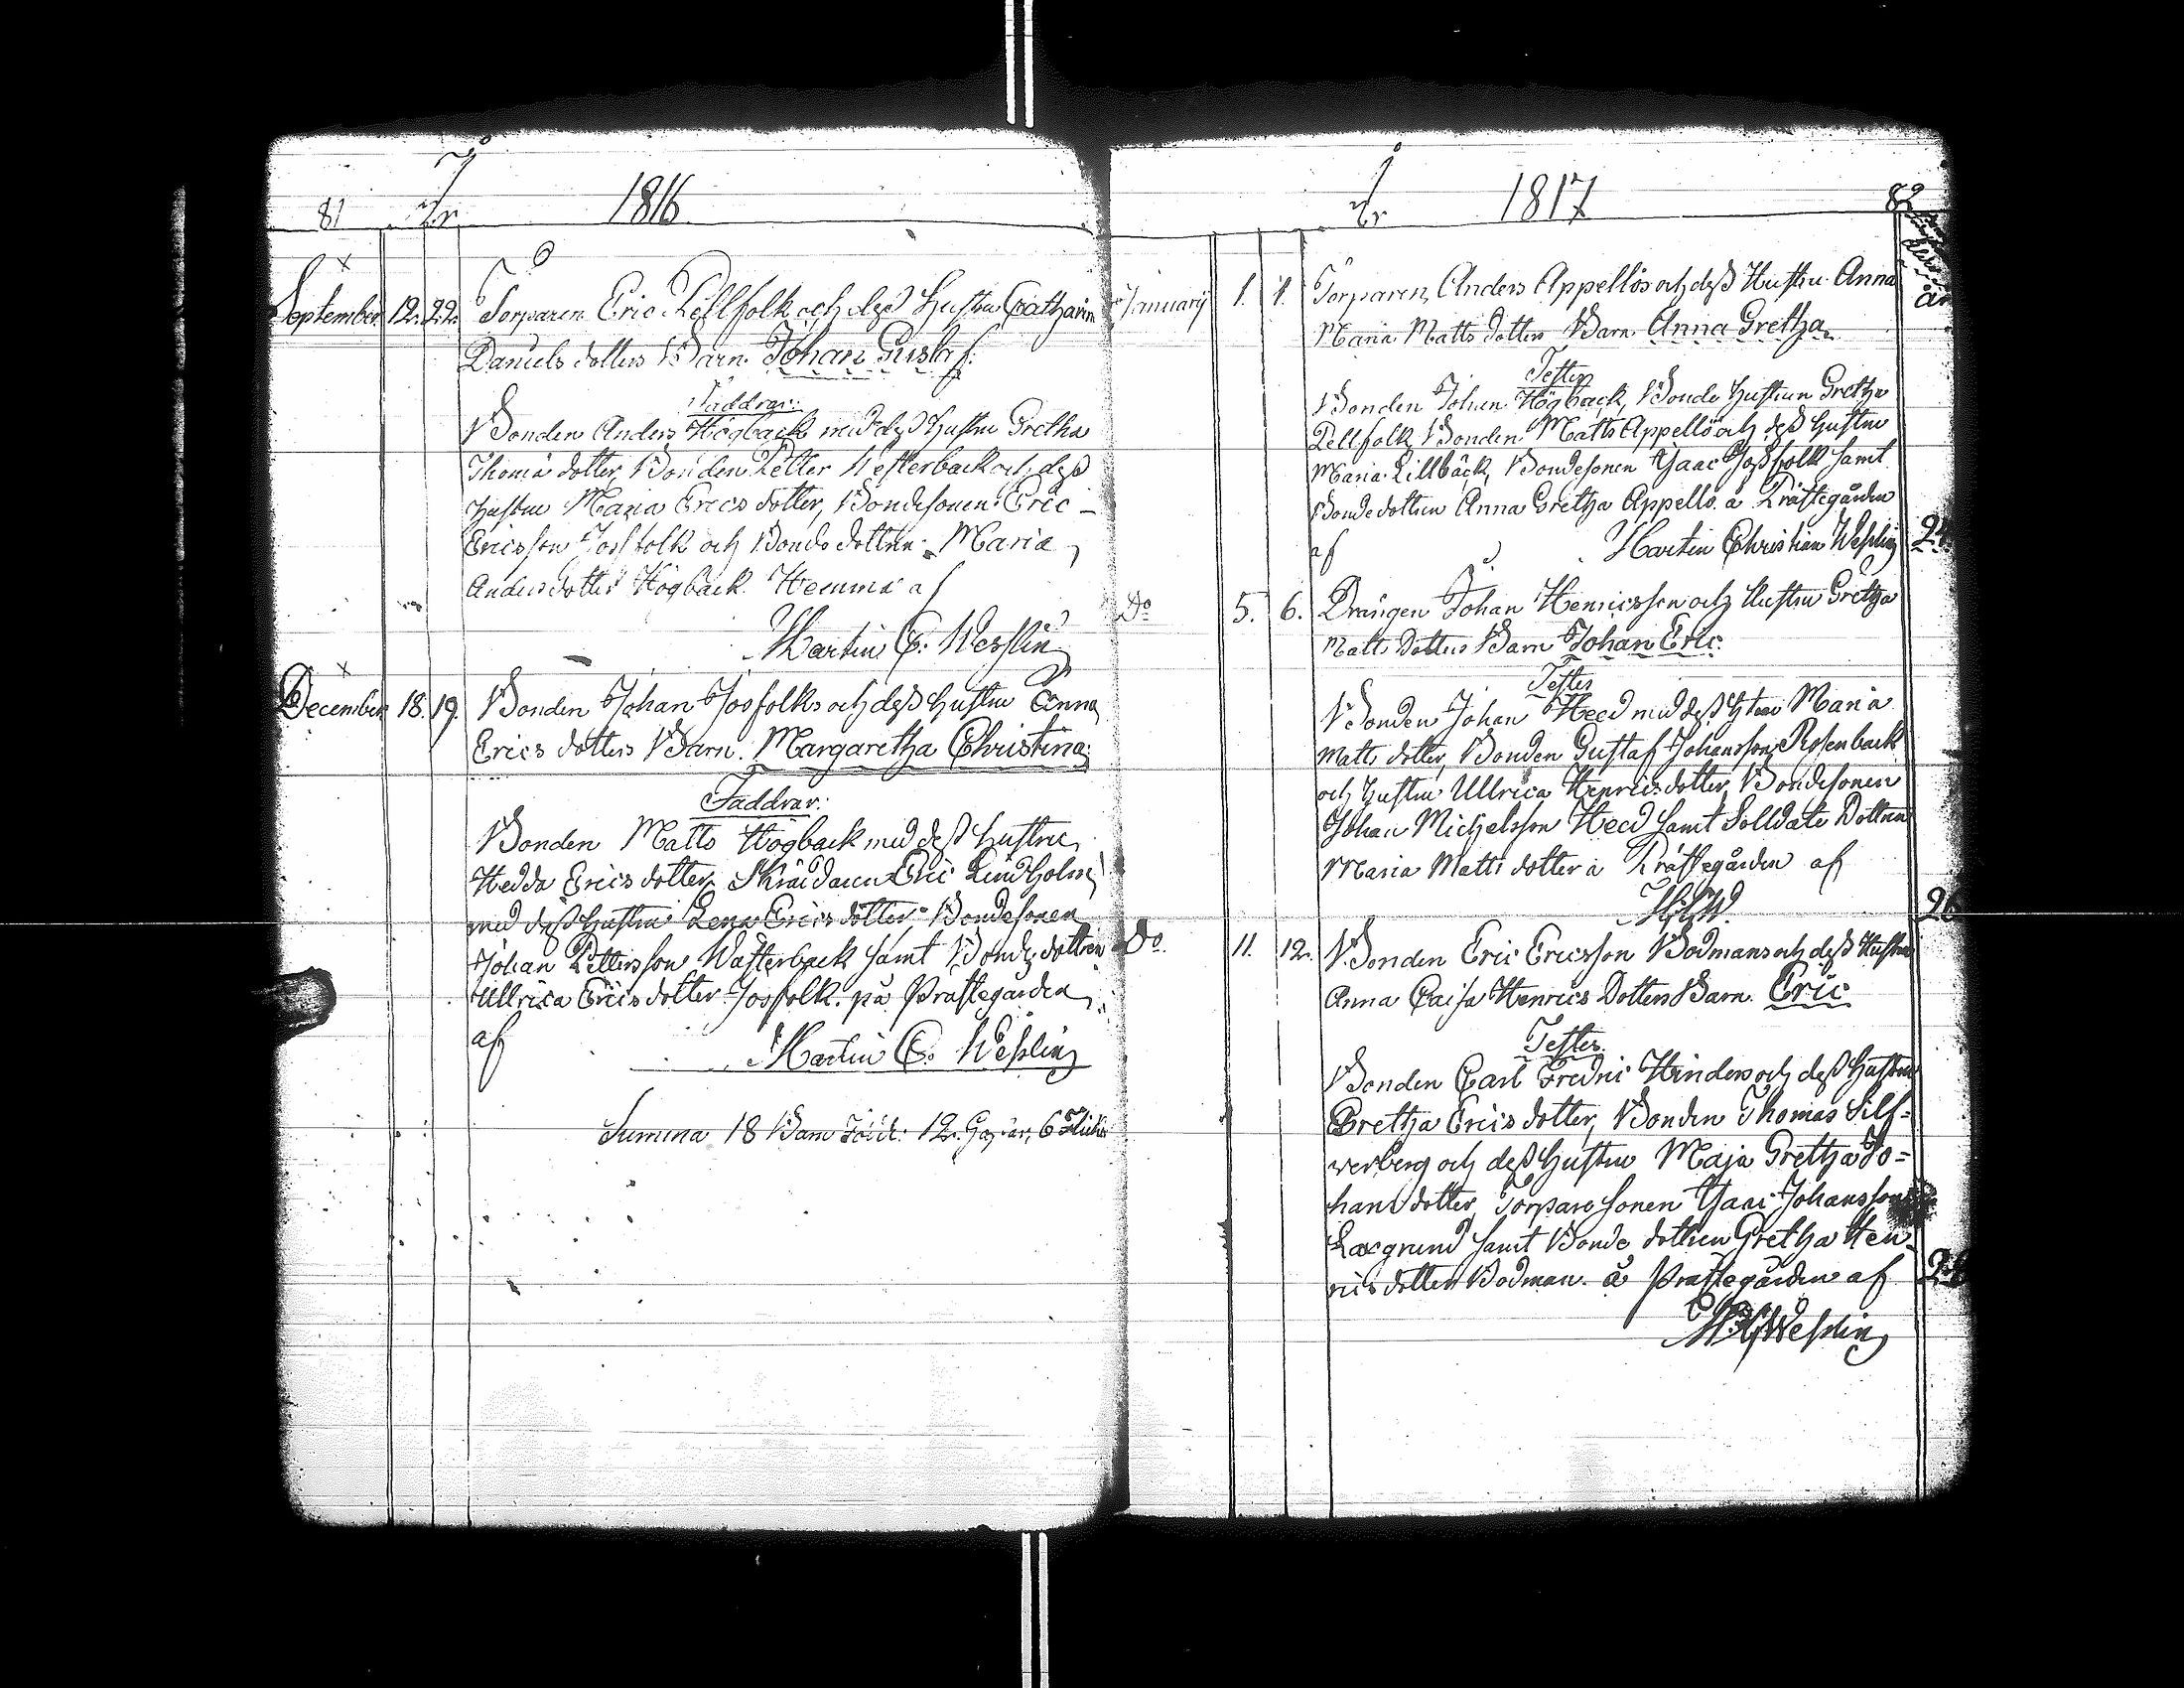 81 År 1816
September 12. 22. Torparen Eric Pellfolk och deß Hustru Catharin
Daniels dotters Barn Johan Gustaf.
Faddrar:
Bonden Anders Högback med deß Hustru Gretha
Thomä dotter, Bonden Petter Westerback och deß
Hustru Maria Erics dotter, Bondesonen Eric
Ericsson Josfolk och Bonde dottren Maria
Anders dotter Högback. Hemma af
Martin C. Wesslin
December 18. 19. Bonden Johan Josfolks och deß Hustru Anna
Erics dotters Barn. Margaretha Christina.
Faddrar:
Bonden Matts Högback med deß Hustru
Hedda Erics dotter, Skräddaren Eric Lindholm
med deß Hustru Lena Erics dotter, Bondesonen
Johan Pettersson Wästerback samt Bonde dottren
Ullrica Erics dotter Josfolk. på Prästegården
af
Martin C. Weßlin
Summa 18 Barn född: 12. Goßar, 6 Flickor
År 1817 82
January 1. 1. Torparen Anders Appellös och deß Hustru Anna
Maria Matts dotters Barn Anna Gretha
Testes
Bonden Johan Högback, Bonde Hustrun Gretha
Pellfolk, Bonden Matts Appellö och deß Hustru
Maria Lillbäck, Bondesonen Isaac Josfolk samt
Bondedottren Anna Gretha Appellö. å Prästegården
af Martin Christian Weßlin
Do 5. 6. Drängen Johan Henricsson och Hustru Gretha
Matts Dotters Barn Johan Eric.
Testes
Bonden Johan Heed med deß Maria
Matts dotter, Bonden Gustaf Johansson Rosenback
och Hustru Ullrica Henricsdotter, Bondesonen
Johan Michelsson Heed samt Solldate Dottren
Maria Matts dotter å Prästegården af
26
Do. 11. 12. Bonden Eric Ericsson Bodmans och deß Hustru
Anna Caisa Henrics Dotters Barn. Eric
Testes
Bonden Carl Fredric Hinders och deß Hustru
Gretha Erics dotter, Bonden Thomas Silf=
werberg och deß Hustru Maja Gretha Jo=
hans dotter, Torpare sonen Isaac Johansson
Laxgrund samt Bonde dottren Gretha Hen
rics dotter Bodman. å Prästegården af
Weßlin